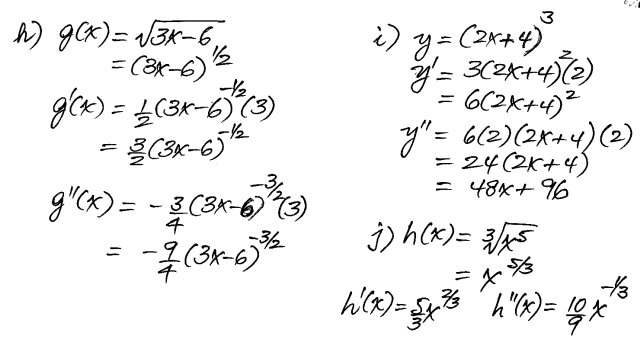 h) g(x) = √(3x-6)
= (3x-6)^1/2
g'(x) = 1/2 (3x-6)^-1/2 (3)
= 3/2 (3x-6)^-1/2
g''(x) = -3/4 (3x-6)^-3/2 (3)
= -9/4 (3x-6)^-3/2
i) y = (2x+4)^3
y' = 3(2x+4)^2 (2)
= 6(2x+4)^2
y'' = 6(2)(2x+4)(2)
= 24(2x+4)
= 48x + 96
j) h(x) = ∛x^5
= x^5/3
h'(x) = 5/3 x^2/3 h''(x) = 10/9 x^-1/3